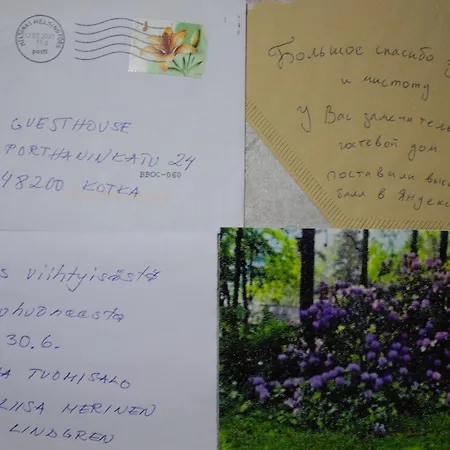 HELSINKI HELSINGFORS
posti
GUESTHOUSE
PORTHANINKATU 24
48200 KOTKA
BBOC-060
Большое спасибо
и чистоту
У Вас
гостевой дом
поставили
балл в
viihtyisästä
30.6.
TUOMISALO
LIISA MERINEN
LINDGREN